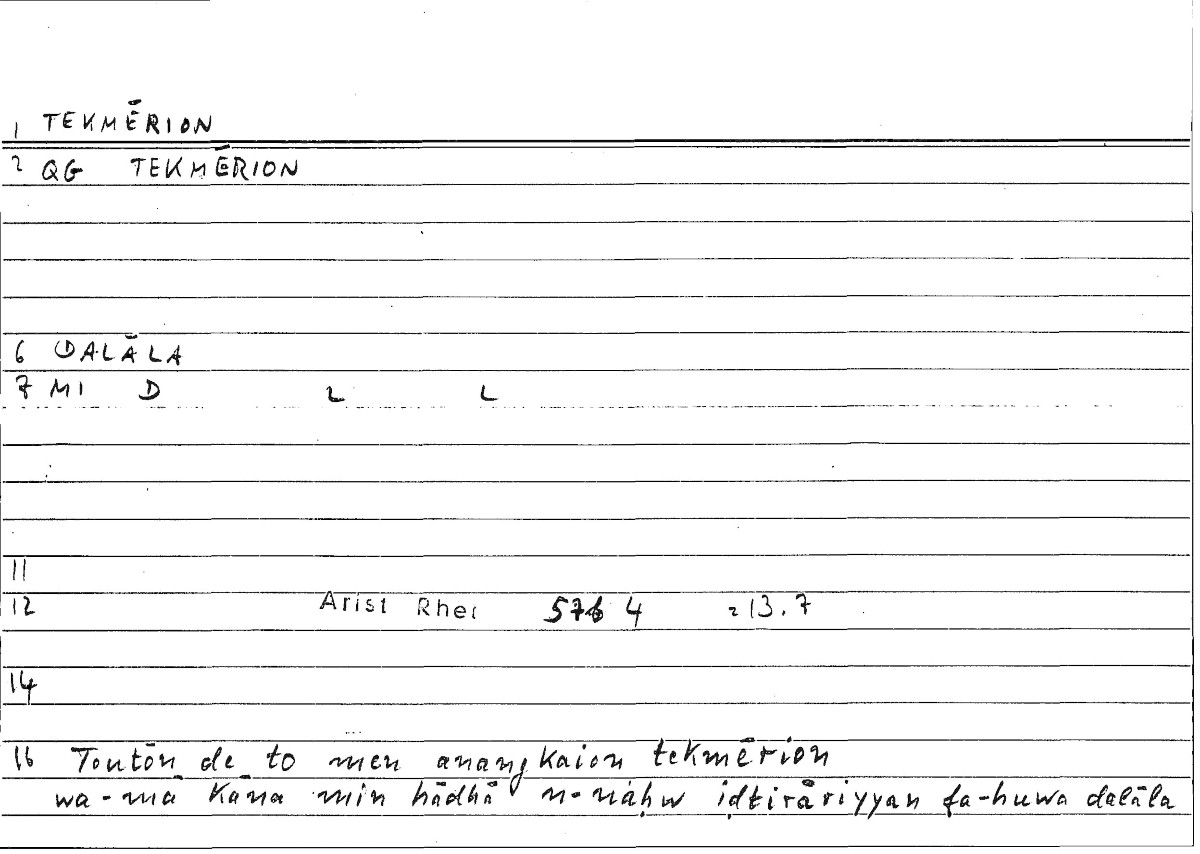 1 TEKMĒRION
2 QG TEKMĒRION
6 DALĀLA
7 MI D L L
11
12 Arist Rhet 57b 4 = 13.7
14
16 Toutōn de to men anangkaion tekmērion
wa-mā kāna min hādhā n-naḥw iḍṭirāriyyan fa-huwa dalāla